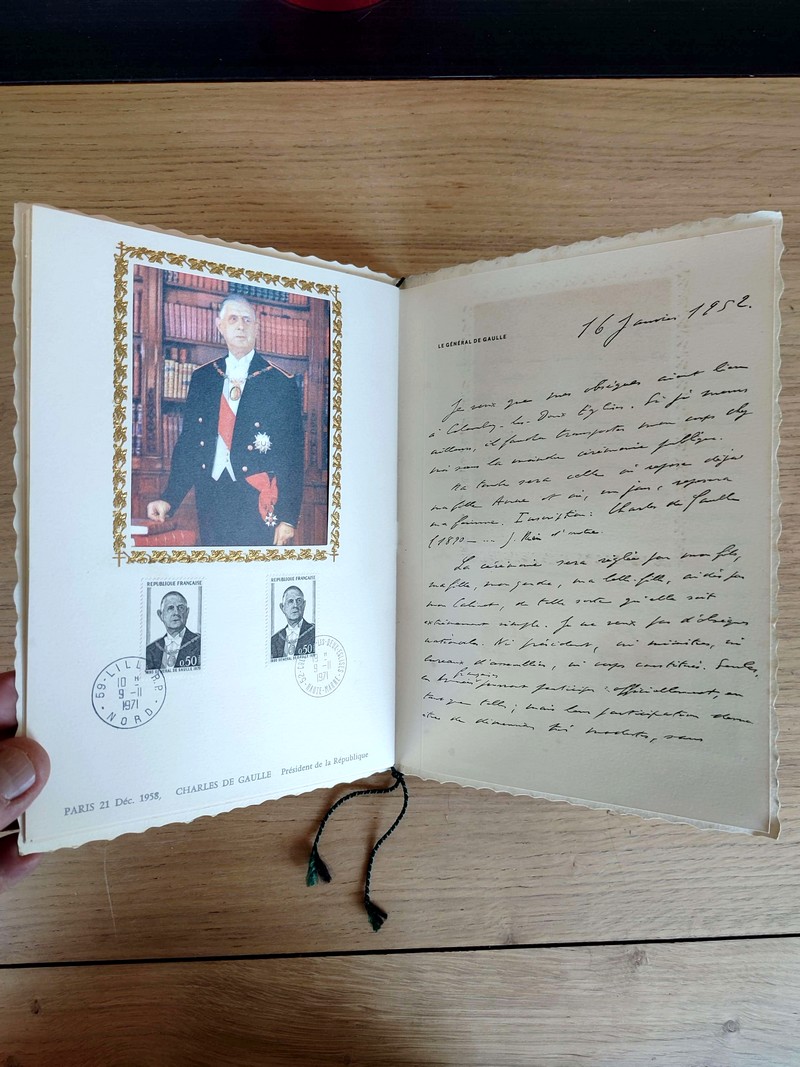 REPUBLIQUE FRANÇAISE
0,50
1890 GENERAL DE GAULLE 1970
REPUBLIQUE FRANÇAISE
0,50
1890 GENERAL DE GAULLE 1970
59 - LILLE R.P.
10 H
9 - 11
1971
NORD
52 - COLOMBEY-LES-DEUX-EGLISES
9 - 11
1971
HAUTE-MARNE
PARIS 21 Déc. 1958, CHARLES DE GAULLE Président de la République
LE GÉNÉRAL DE GAULLE
16 Janvier 1952.
Je veux que mes obsèques aient lieu
à Colombey-les-Deux Eglises. Si je meurs
ailleurs, il faudra transporter mon corps chez
moi sans la moindre cérémonie publique.
Ma tombe sera celle où repose déjà
ma fille Anne et où, un jour, reposera
ma femme. Inscription: Charles de Gaulle
(1890-...). Rien d'autre.
La cérémonie sera réglée par mon fils,
ma fille, mon gendre, ma belle-fille, aidés par
mon Cabinet, de telle sorte qu'elle soit
extrêmement simple. Je ne veux pas d'obsèques
nationales. Ni président, ni ministres, ni
bureaux d'assemblées, ni corps constitués. Seules,
françaises
les armées pourront participer officiellement, en
tant que telles; mais leur participation devra
être de dimension très modeste, sans